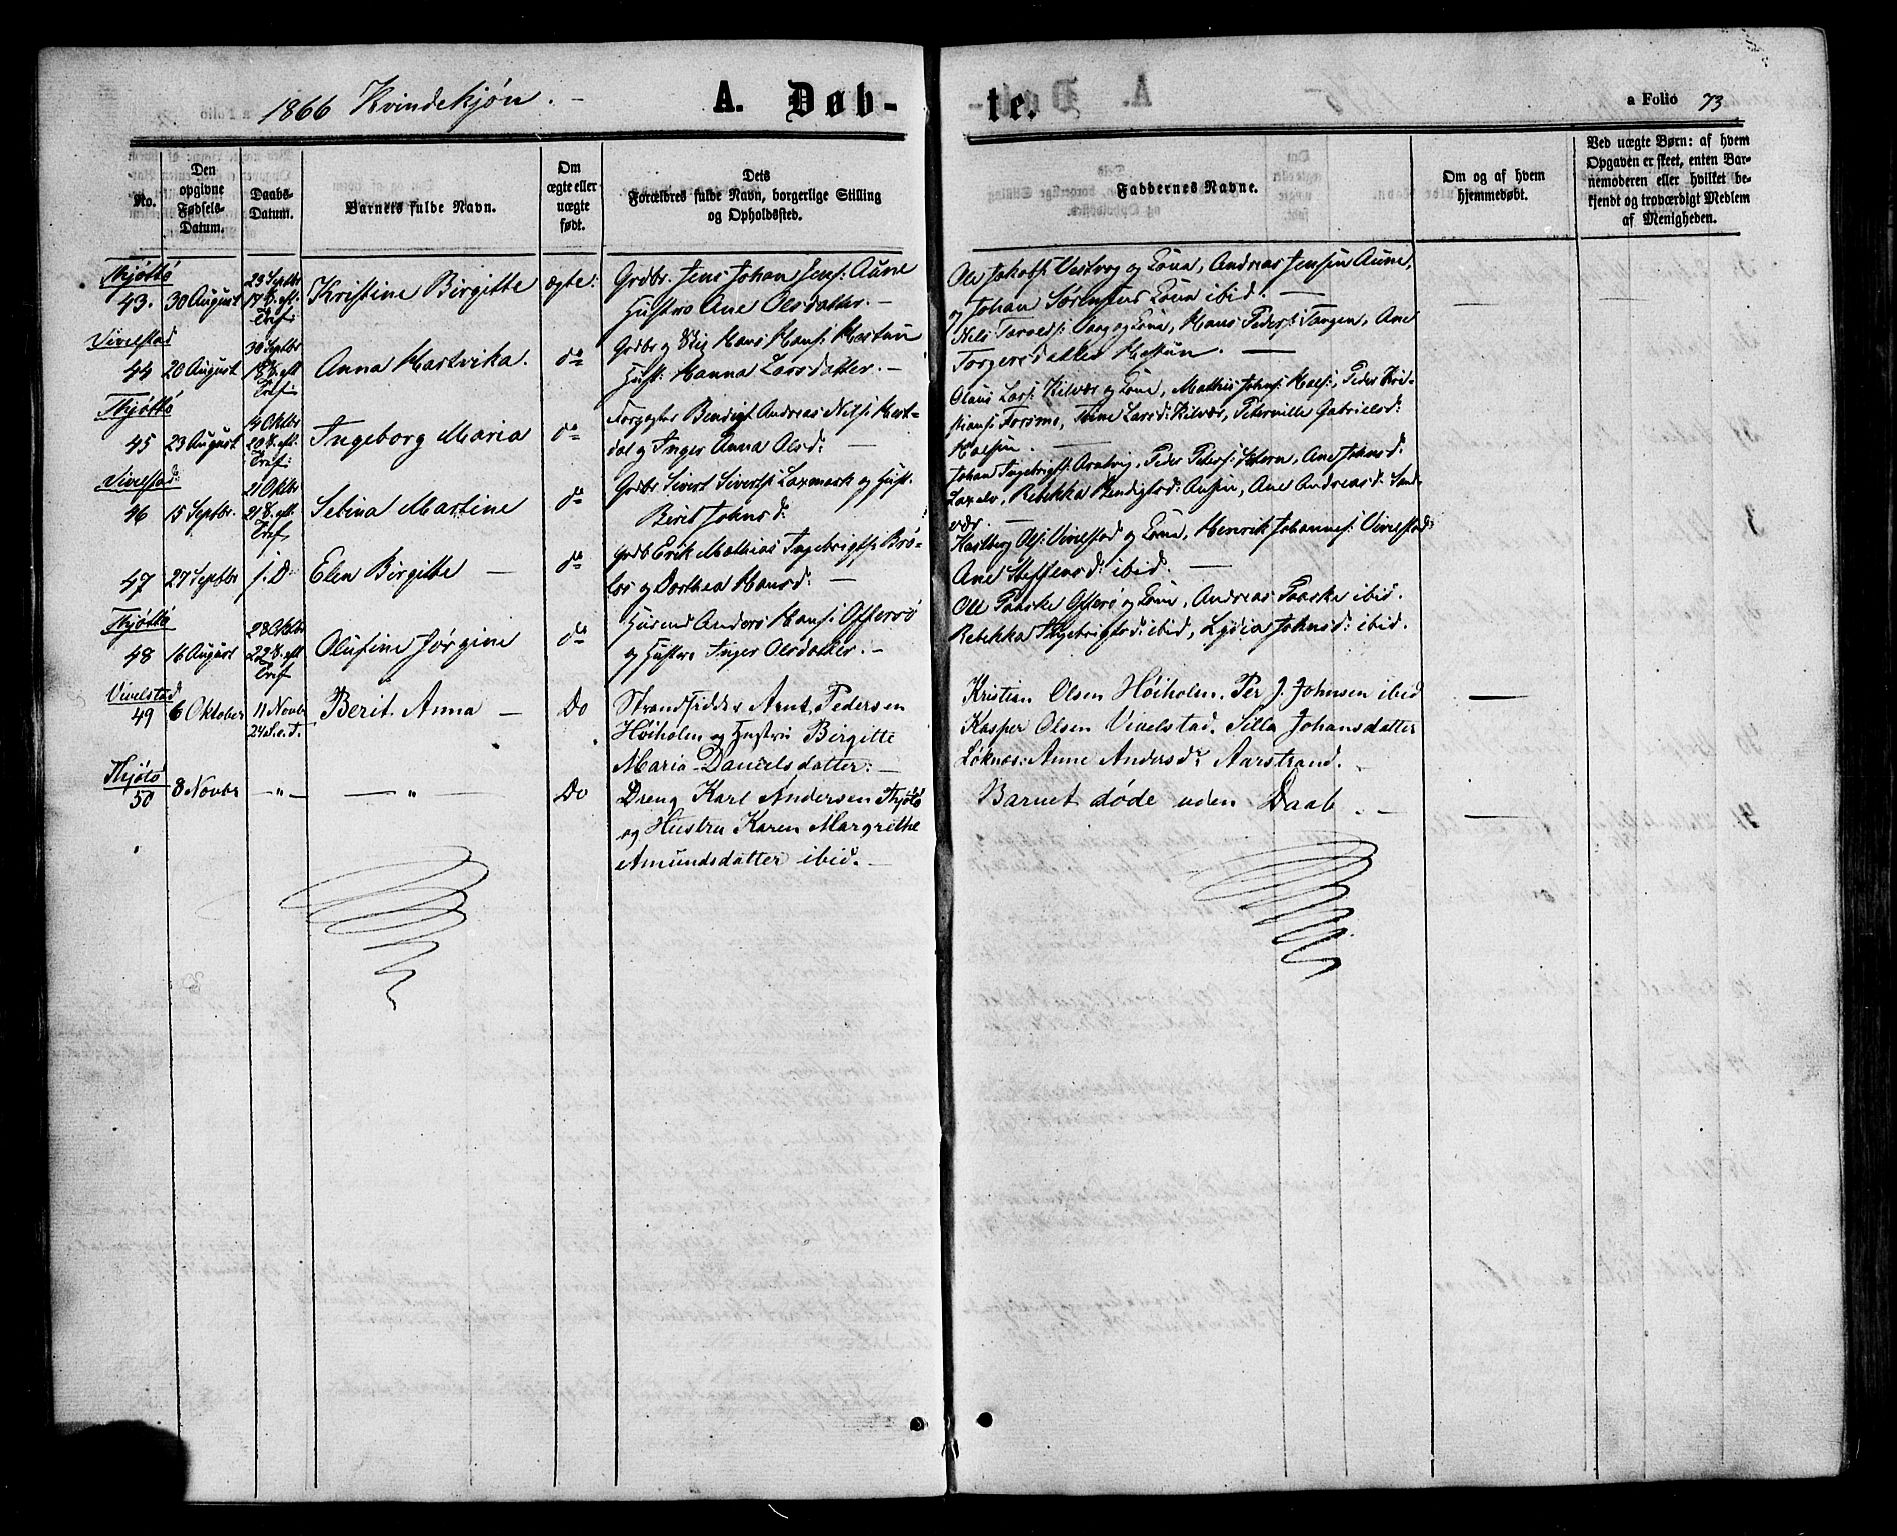 1866 Kvindekjøn. -
A. Døb-
te.
a Folio 73
No.
Den opgivne Fødsels-Datum.
Daabs-Datum.
Barnets fulde Navn.
Om ægte eller uægte født.
Dets Forældres fulde Navn, borgerlige Stilling og Opholdssted.
Faddernes Navne.
Om og af hvem hjemmedøbt.
Ved uægte Børn: af hvem Opgaven er skeet, enten Barnemoderen eller hvilket bekjendt og troværdigt Medlem af Menigheden.
Thjøttø
43. 30 August 23 Septbr 17 S. eft. Tref: Kristine Birgitte ægte: Grdbr. Jens Johan Jens: Aune
Hustro Ane Olsdatter. -
Ole Jakobs: Vestvog og Kona, Andreas Jensen Aune,
og Johan Sørensens Kona ibid. -
Vivelstad
44 20 August 30 Septbr 18 S. eft Tref: Anna Hartvika. do Grdbr og Hans Hans:
Hust: Hanna Larsdatter. -
Nils og Kona, Hans Peders: Tangen, Ane
Torgersdatter
Thjøttø
45 23 August Oktbr 20 S. eft. Tref: Ingeborg Maria do Andreas Nils:
dal og Inger Anna Olsd: -
Olaus Lars: Kilvær og Kona, Mathis Johns: Peder Kri-
stians: Forsmo, Larsd: Kilvær, Gabrielsd:
Vivelstad:
46 15 Septbr. 21 Oktbr 21 S. eft Tref: Sebina Martine do Grdbr Sivert Siverts: Laxmark og Hust.
Berit Johnsd:
Johan Ingebrigts: Peder Peters: Ane Johnsd:
Rebekka Bendigtsd: Ane Andreasd: Sand-
vær. -
47 27 Septbr s. D: Elen Birgitte - do Grdb Erik Mathias Ingebrigts: Brø-
løs og Dorthea Hansd: -
Ols: Vivelstad og Kona, Henrik Johannes: Vivelstad:
Ane Steffensd: ibid. -
Thjøttø
48 16 August 28 Oktbr 22 S. eft Tref Olufine Jørgine do Husmd Anders Hans: Offersø
og Hustro Inger Olsdatter. -
Ole Paaske Offersø og Kona, Andreas Paaske ibid.
Rebekka Ingebrigtsd: ibid, Lydia Johnsd: ibid.
Vivelstad
49 6 Oktober 11 Novbr 24 S. e. T. Berit Anna - Do Strandsidder Arnt Pedersen
Høiholm og Hustru Birgitte
Maria Danielsdatter: -
Kristian Olsen Høiholm. Per J. Johnsen ibid
Kasper Olsen Vivelstad. Silla Johansdatter
Løknæs: Anne Andersdr Aarstrand.
Thjøtø
50 8 Novbr - " - - " - Do Dreng Karl Andersen Thjøtø
og Hustru Karen Margrethe
Amundsdatter ibid. -
Barnet døde uden Daab. -